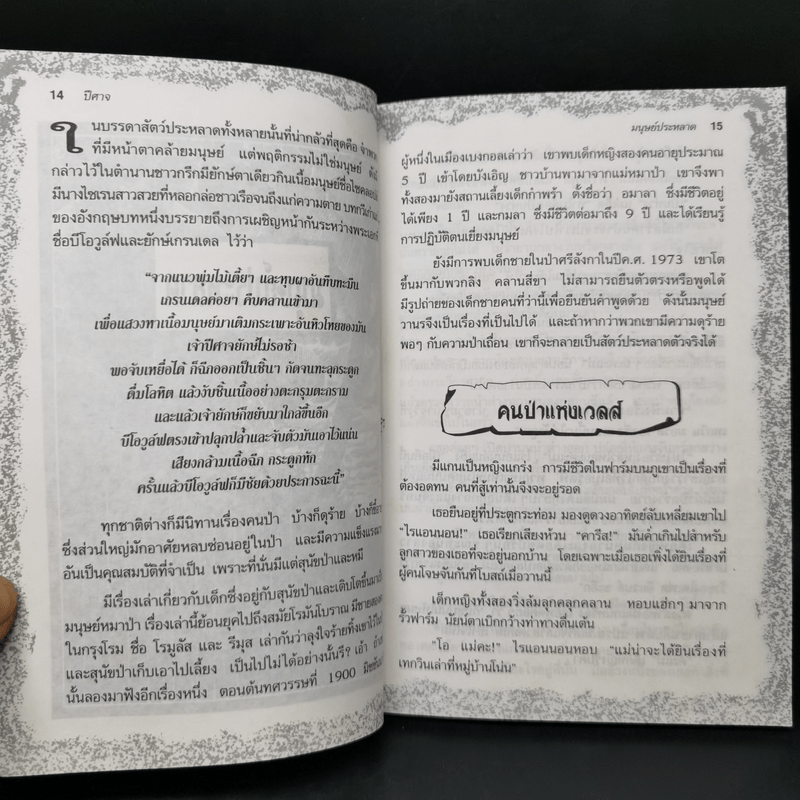 14 ปีศาจ
ในบรรดาสัตว์ประหลาดทั้งหลายนั้นที่น่ากลัวที่สุดคือ จำพวก
ที่มีหน้าตาคล้ายมนุษย์ แต่พฤติกรรมไม่ใช่มนุษย์
กล่าวไว้ในตำนานชาวกรีกมียักษ์ตาเดียวกินเนื้อมนุษย์ชื่อไซคลอปส์
มีนางไซเรนสาวสวยที่หลอกล่อชาวเรือจนถึงแก่ความตาย บทกวี
ของอังกฤษบทหนึ่งบรรยายถึงการเผชิญหน้ากันระหว่างพระเอก
ชื่อบีโอวูล์ฟและยักษ์เกรนเดล ไว้ว่า
“จากแนวพุ่มไม้เตี้ยๆ และหุบผาอันทึบทะมึน
เกรนเดลค่อยๆ คืบคลานเข้ามา
เพื่อแสวงหาเนื้อมนุษย์มาเติมกระเพาะอันหิวโหยของมัน
เจ้าปีศาจยักษ์ไม่รอช้า
พอจับเหยื่อได้ ก็ฉีกออกเป็นชิ้นๆ กัดจนทะลุกระดูก
ดื่มโลหิต แล้วงับชิ้นเนื้ออย่างตะกรุมตะกราม
และแล้วเจ้ายักษ์ก็ขยับมาใกล้ขึ้นอีก
บีโอวูล์ฟตรงเข้าปลุกปล้ำและจับตัวมันเอาไว้แน่น
เสียงกล้ามเนื้อฉีก กระดูกหัก
ครั้นแล้วบีโอวูล์ฟก็มีชัยด้วยประการฉะนี้”
ทุกชาติต่างก็มีนิทานเรื่องคนป่า บ้างก็ดุร้าย บ้างก็ขี้อาย
ซึ่งส่วนใหญ่มักอาศัยหลบซ่อนอยู่ในป่า และมีความแข็งแรง
อันเป็นคุณสมบัติที่จำเป็น เพราะที่นั่นมีแต่สุนัขป่าและหมี
มีเรื่องเล่าเกี่ยวกับเด็กซึ่งอยู่กับสุนัขป่าและเติบโตขึ้นมาเป็น
มนุษย์หมาป่า เรื่องเล่านี้ย้อนยุคไปถึงสมัยโรมันโบราณ มีชายสอง
ในกรุงโรม ชื่อ โรมูลัส และ รีมุส เล่ากันว่าลุงใจร้ายทิ้งเขาไว้
และสุนัขป่าเก็บเอาไปเลี้ยง เป็นไปไม่ได้อย่างนั้นรึ? เอ้า
นั้นลองมาฟังอีกเรื่องหนึ่ง ตอนต้นทศวรรษที่ 1900
มนุษย์ประหลาด 15
ผู้หนึ่งในเมืองเบงกอลเล่าว่า เขาพบเด็กหญิงสองคนอายุประมาณ
5 ปี เข้าโดยบังเอิญ ชาวบ้านพามาจากแม่หมาป่า เขาจึงพา
ทั้งสองมายังสถานเลี้ยงเด็กกำพร้า ตั้งชื่อว่า อมาลา ซึ่งมีชีวิตอยู่
ได้เพียง 1 ปี และกมลา ซึ่งมีชีวิตต่อมาถึง 9 ปี และได้เรียนรู้
การปฏิบัติตนเยี่ยงมนุษย์
ยังมีการพบเด็กชายในป่าศรีลังกาในปีค.ศ. 1973 เขาโต
ขึ้นมากับพวกลิง คลานสี่ขา ไม่สามารถยืนตัวตรงหรือพูดได้
มีรูปถ่ายของเด็กชายคนที่ว่านี้เพื่อยืนยันคำพูดด้วย ดังนั้นมนุษย์
วานรจึงเป็นเรื่องที่เป็นไปได้ และถ้าหากว่าพวกเขามีความดุร้าย
พอๆ กับความป่าเถื่อน เขาก็จะกลายเป็นสัตว์ประหลาดตัวจริงได้
คนป่าแห่งเวลส์
มีแกนเป็นหญิงแกร่ง การมีชีวิตในฟาร์มบนภูเขาเป็นเรื่องที่
ต้องอดทน คนที่สู้เท่านั้นจึงจะอยู่รอด
เธอยืนอยู่ที่ประตูกระท่อม มองดูดวงอาทิตย์ลับเหลี่ยมเขาไป
“ไรแอนนอน!” เธอเรียกเสียงห้วน “คารีส!” มันค่ำเกินไปสำหรับ
ลูกสาวของเธอที่จะอยู่นอกบ้าน โดยเฉพาะเมื่อเธอเพิ่งได้ยินเรื่องที่
ผู้คนโจษจันกันที่โบสถ์เมื่อวานนี้
เด็กหญิงทั้งสองวิ่งล้มลุกคลุกคลาน หอบแฮ่กๆ มาจาก
รั้วฟาร์ม นัยน์ตาเบิกกว้างท่าทางตื่นเต้น
“โอ แม่คะ!” ไรแอนนอนหอบ “แม่น่าจะได้ยินเรื่องที่
เทกวินเล่าที่หมู่บ้านโน่น”